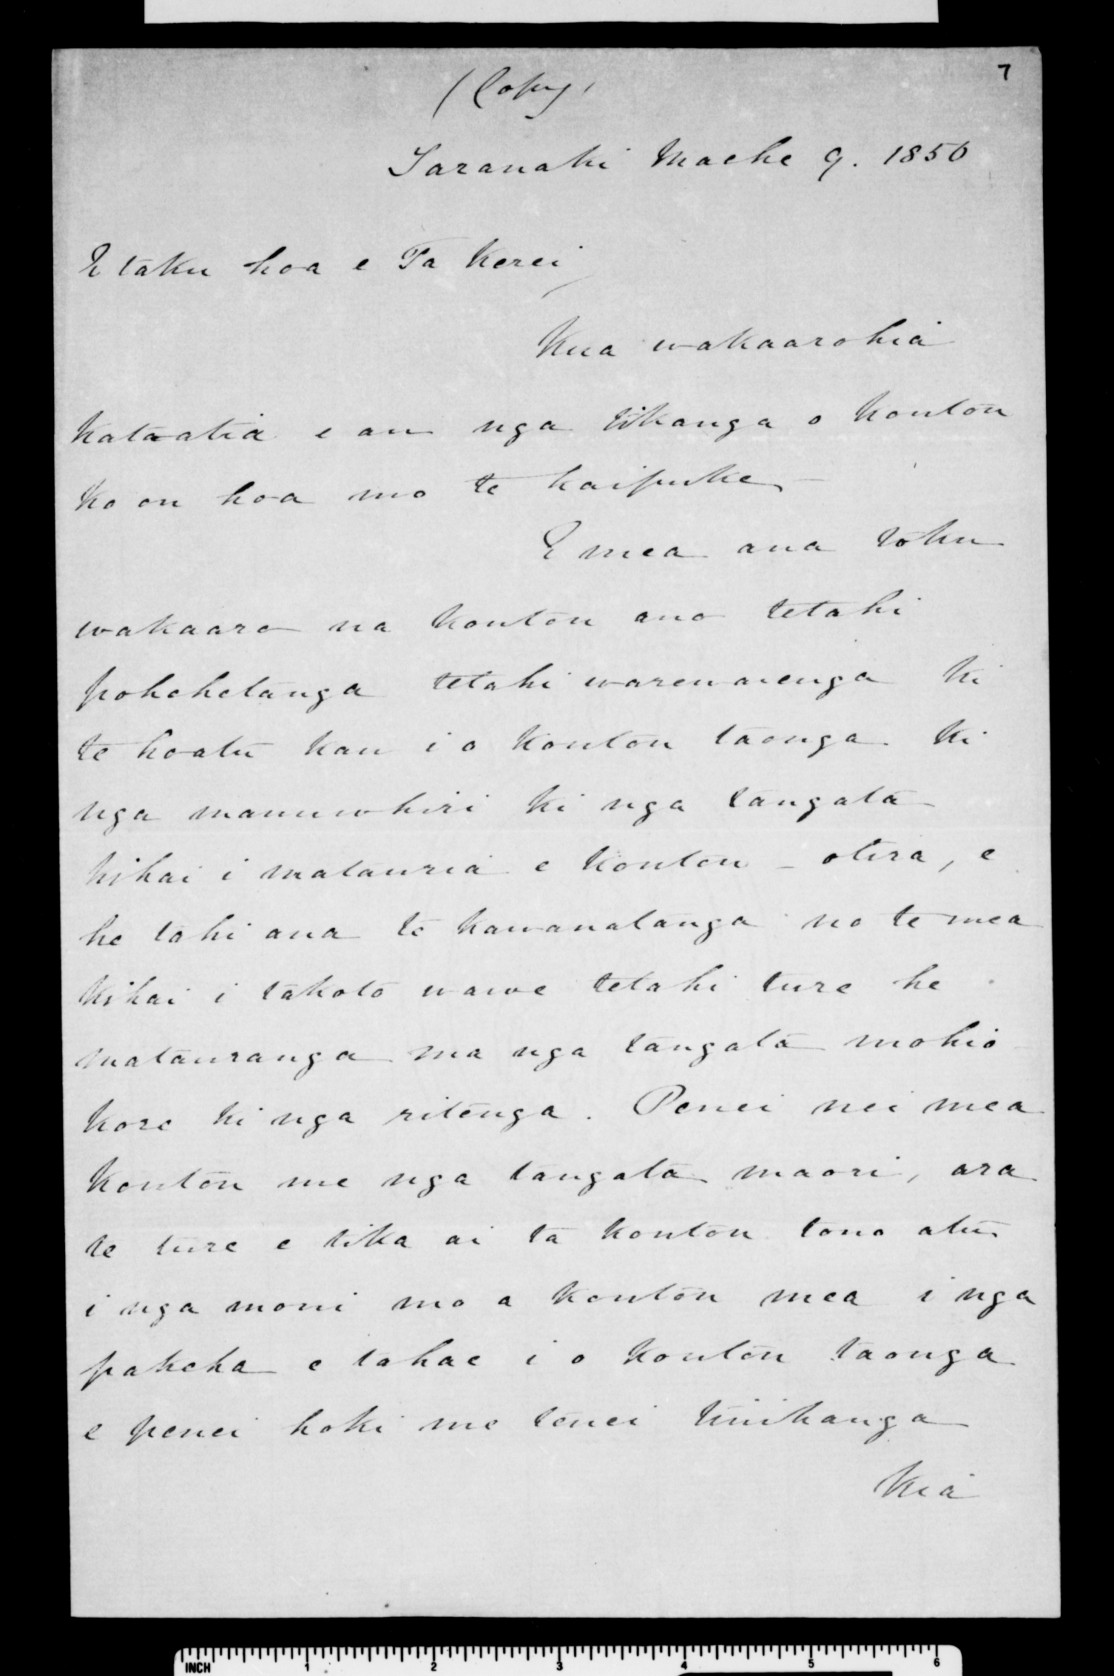 7
(Copy)
Taranaki Maehe 9. 1850
E taku hoa e Ta Kerei
Kua wakaarohia
Katoatia e au nga tikanga o Koutou
Ko ou hoa mo te kaipuke –
E mea ana toku
wakaaro na Koutou ano tetahi
pohehetanga tetahi warewarenga Ki
te hoatu Kau i o Koutou taonga Ki
nga manuwhiri Ki nga tangata
kihai i matauria e Koutou – otira, e
he tahi ana te Kawanatanga no te mea
Kihai i takoto wawe tetahi ture he
matauranga ma nga tangata mohio
Kore Ki nga ritenga. Penei nei mea
Koutou me nga tangata maori, ara
te ture e tika ai ta Koutou tono atu
i nga moni mo a Koutou mea i nga
pakeha e tahae i o Koutou taonga
e penei hoki me tenei
Kia
INCH 1 2 3 4 5 6